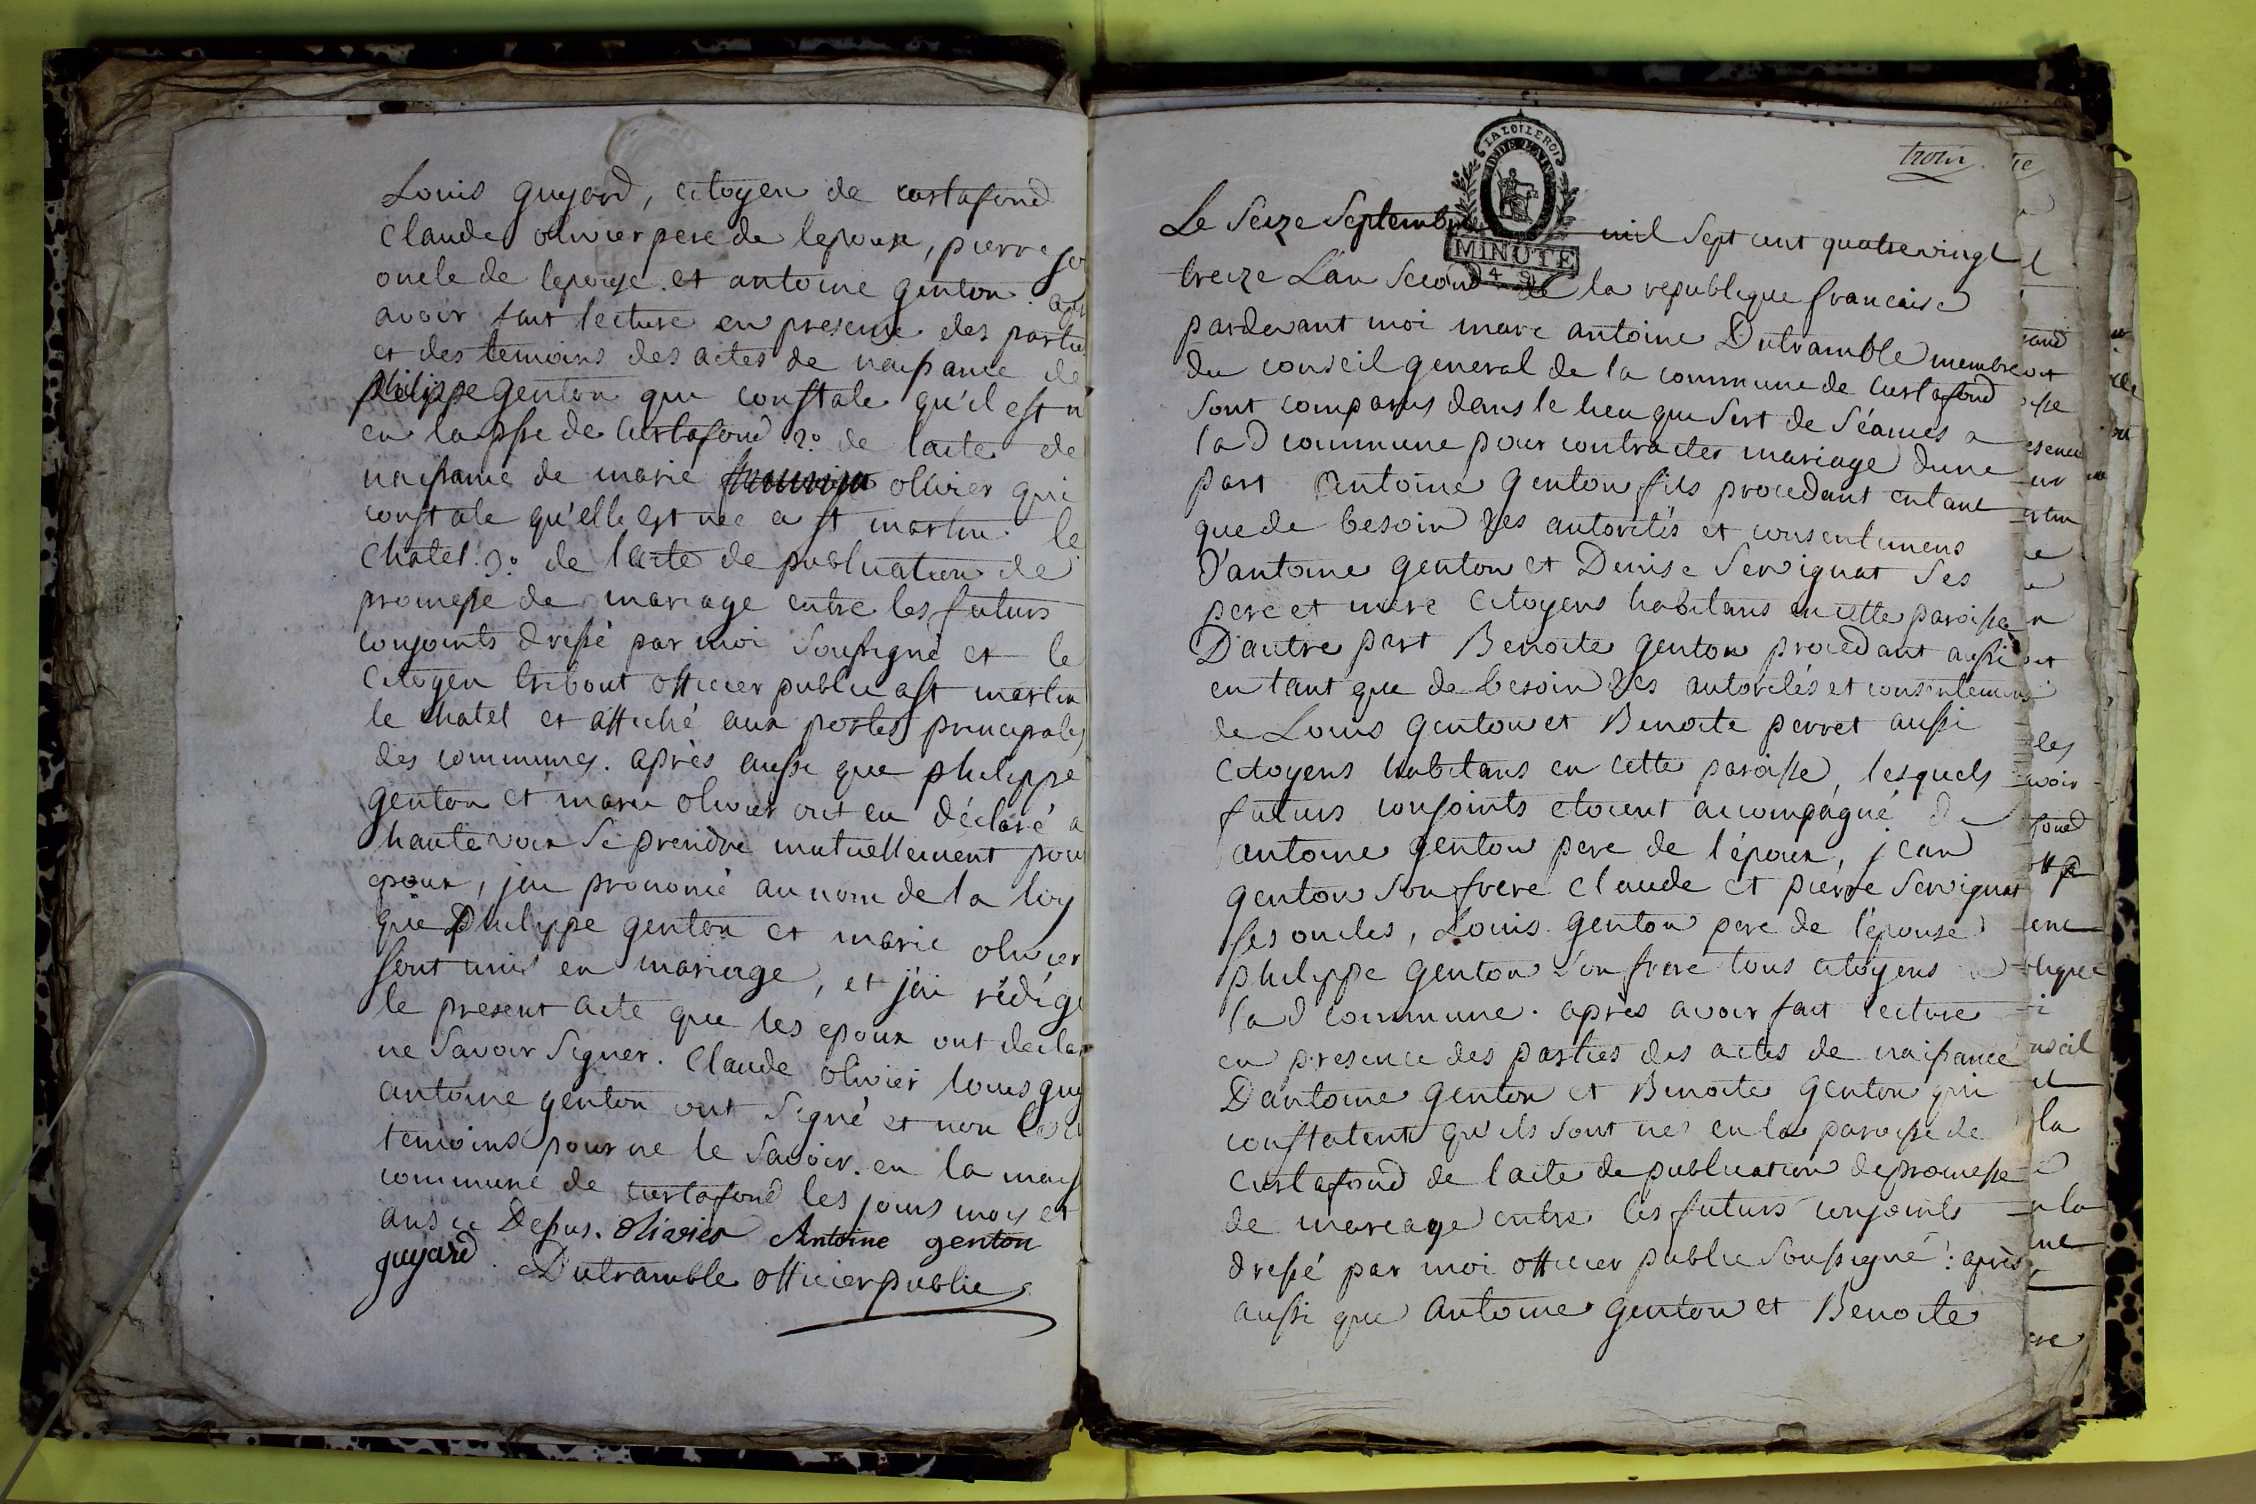 Louis guyard, citoyen de curtafond
Claude olivier pere de lepoux, pierre
oncle de lepouse et antoine genton
avoir fait lecture en presence des partie
et des temoins des actes de naissance de
philippe genton qui constate qu'il est n
en la psse de Curtafond 2.º de lacte de
naissance de marie olivier qui
constate qu'elle est nee a st martin le
Chatel. 3.º de lacte de publication de
promesse de mariage entre les futurs
conjoints dressé par moi soussigné et le
Citoyen tribout officier public a st martin
le chatel et affiché aux portes principales
des communes. après aussi que philippe
genton et marie olivier ont eu déclaré a
haute voix se prendre mutuellement pour
epoux, j'ai prononcé au nom de la loy
que Philippe genton et marie olivier
sont unis en mariage, et j'ai rédigé
le present acte que les epoux ont declar
ne savoir signer. Claude olivier louis guy
antoine genton ont signé et non
temoins pour ne le savoir. en la mais
commune de curtafond les jours mois et
ans ci Dessus. olivier Antoine genton
guyard. Dutramble officier public
trois
LA LOI LE ROI
MINUTE
4 S
Le Seize Septembre mil sept cent quatrevingt
treize L'an second de la republique francaise
pardevant moi marc antoine Dutramble membre
du conseil general de la commune de Curtafond
sont comparus dans le lieu qui sert de séances a
lad commune pour contracter mariage dune
part Antoine genton fils procedant entant
que de besoin des autorités et consentemens
D'antoine genton et Denise Servignat ses
pere et mere Citoyens habitans en cette paroisse
D'autre part Benoite genton procedant aussi
en tant que de besoin des autorités et consentemens
de Louis genton et Benoite perret aussi
Citoyens habitans en cette paroisse, lesquels
futurs conjoints etoient accompagné de
antoine genton pere de l'époux, jean
genton son frere claude et pierre Servignat
ses oncles, Louis genton pere de l'épouse
philippe genton son frere tous citoyens de
lad commune. après avoir fait lecture
en presence des parties des actes de naissance
D'antoine genton et Benoite genton qui
constatent qu'ils sont nés en la paroisse de
Curtafond de lacte de publication de promesse
de mariage entre les futurs conjoints
dressé par moi officier public soussigné: après
aussi que antoine genton et Benoite